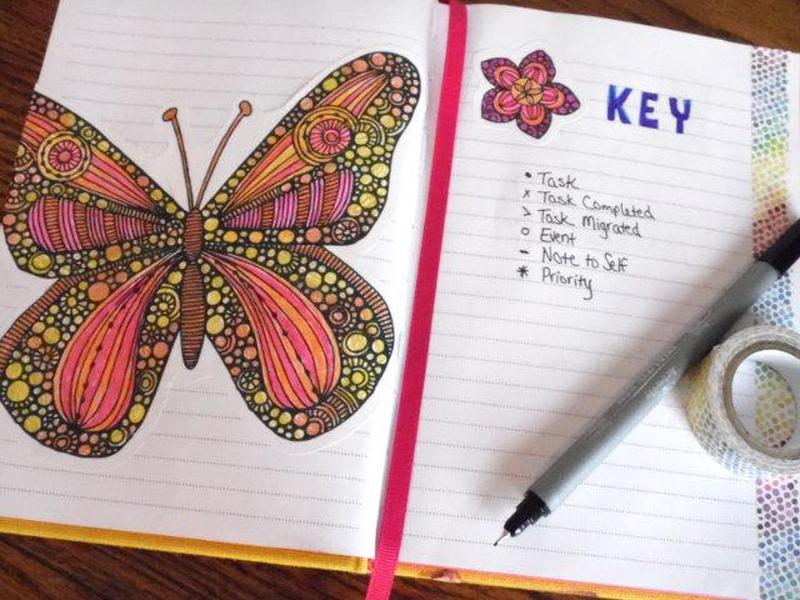 KEY
• Task
x Task Completed
> Task Migrated
o Event
- Note to Self
* Priority